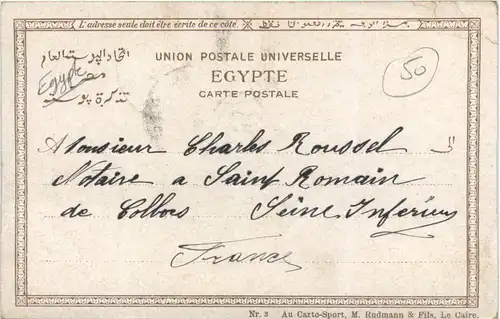 L'adresse seule doit être écrite de ce côté.
UNION POSTALE UNIVERSELLE
اتحاد البوستة العام
Egypte
50
EGYPTE
تذكرة بوستة
CARTE POSTALE
Monsieur Charles Roussel
Notaire a Saint Romain
de Colbos Seine Inférieu
France
Nr. 3 Au Carto-Sport, M. Rudmann & Fils, Le Caire.